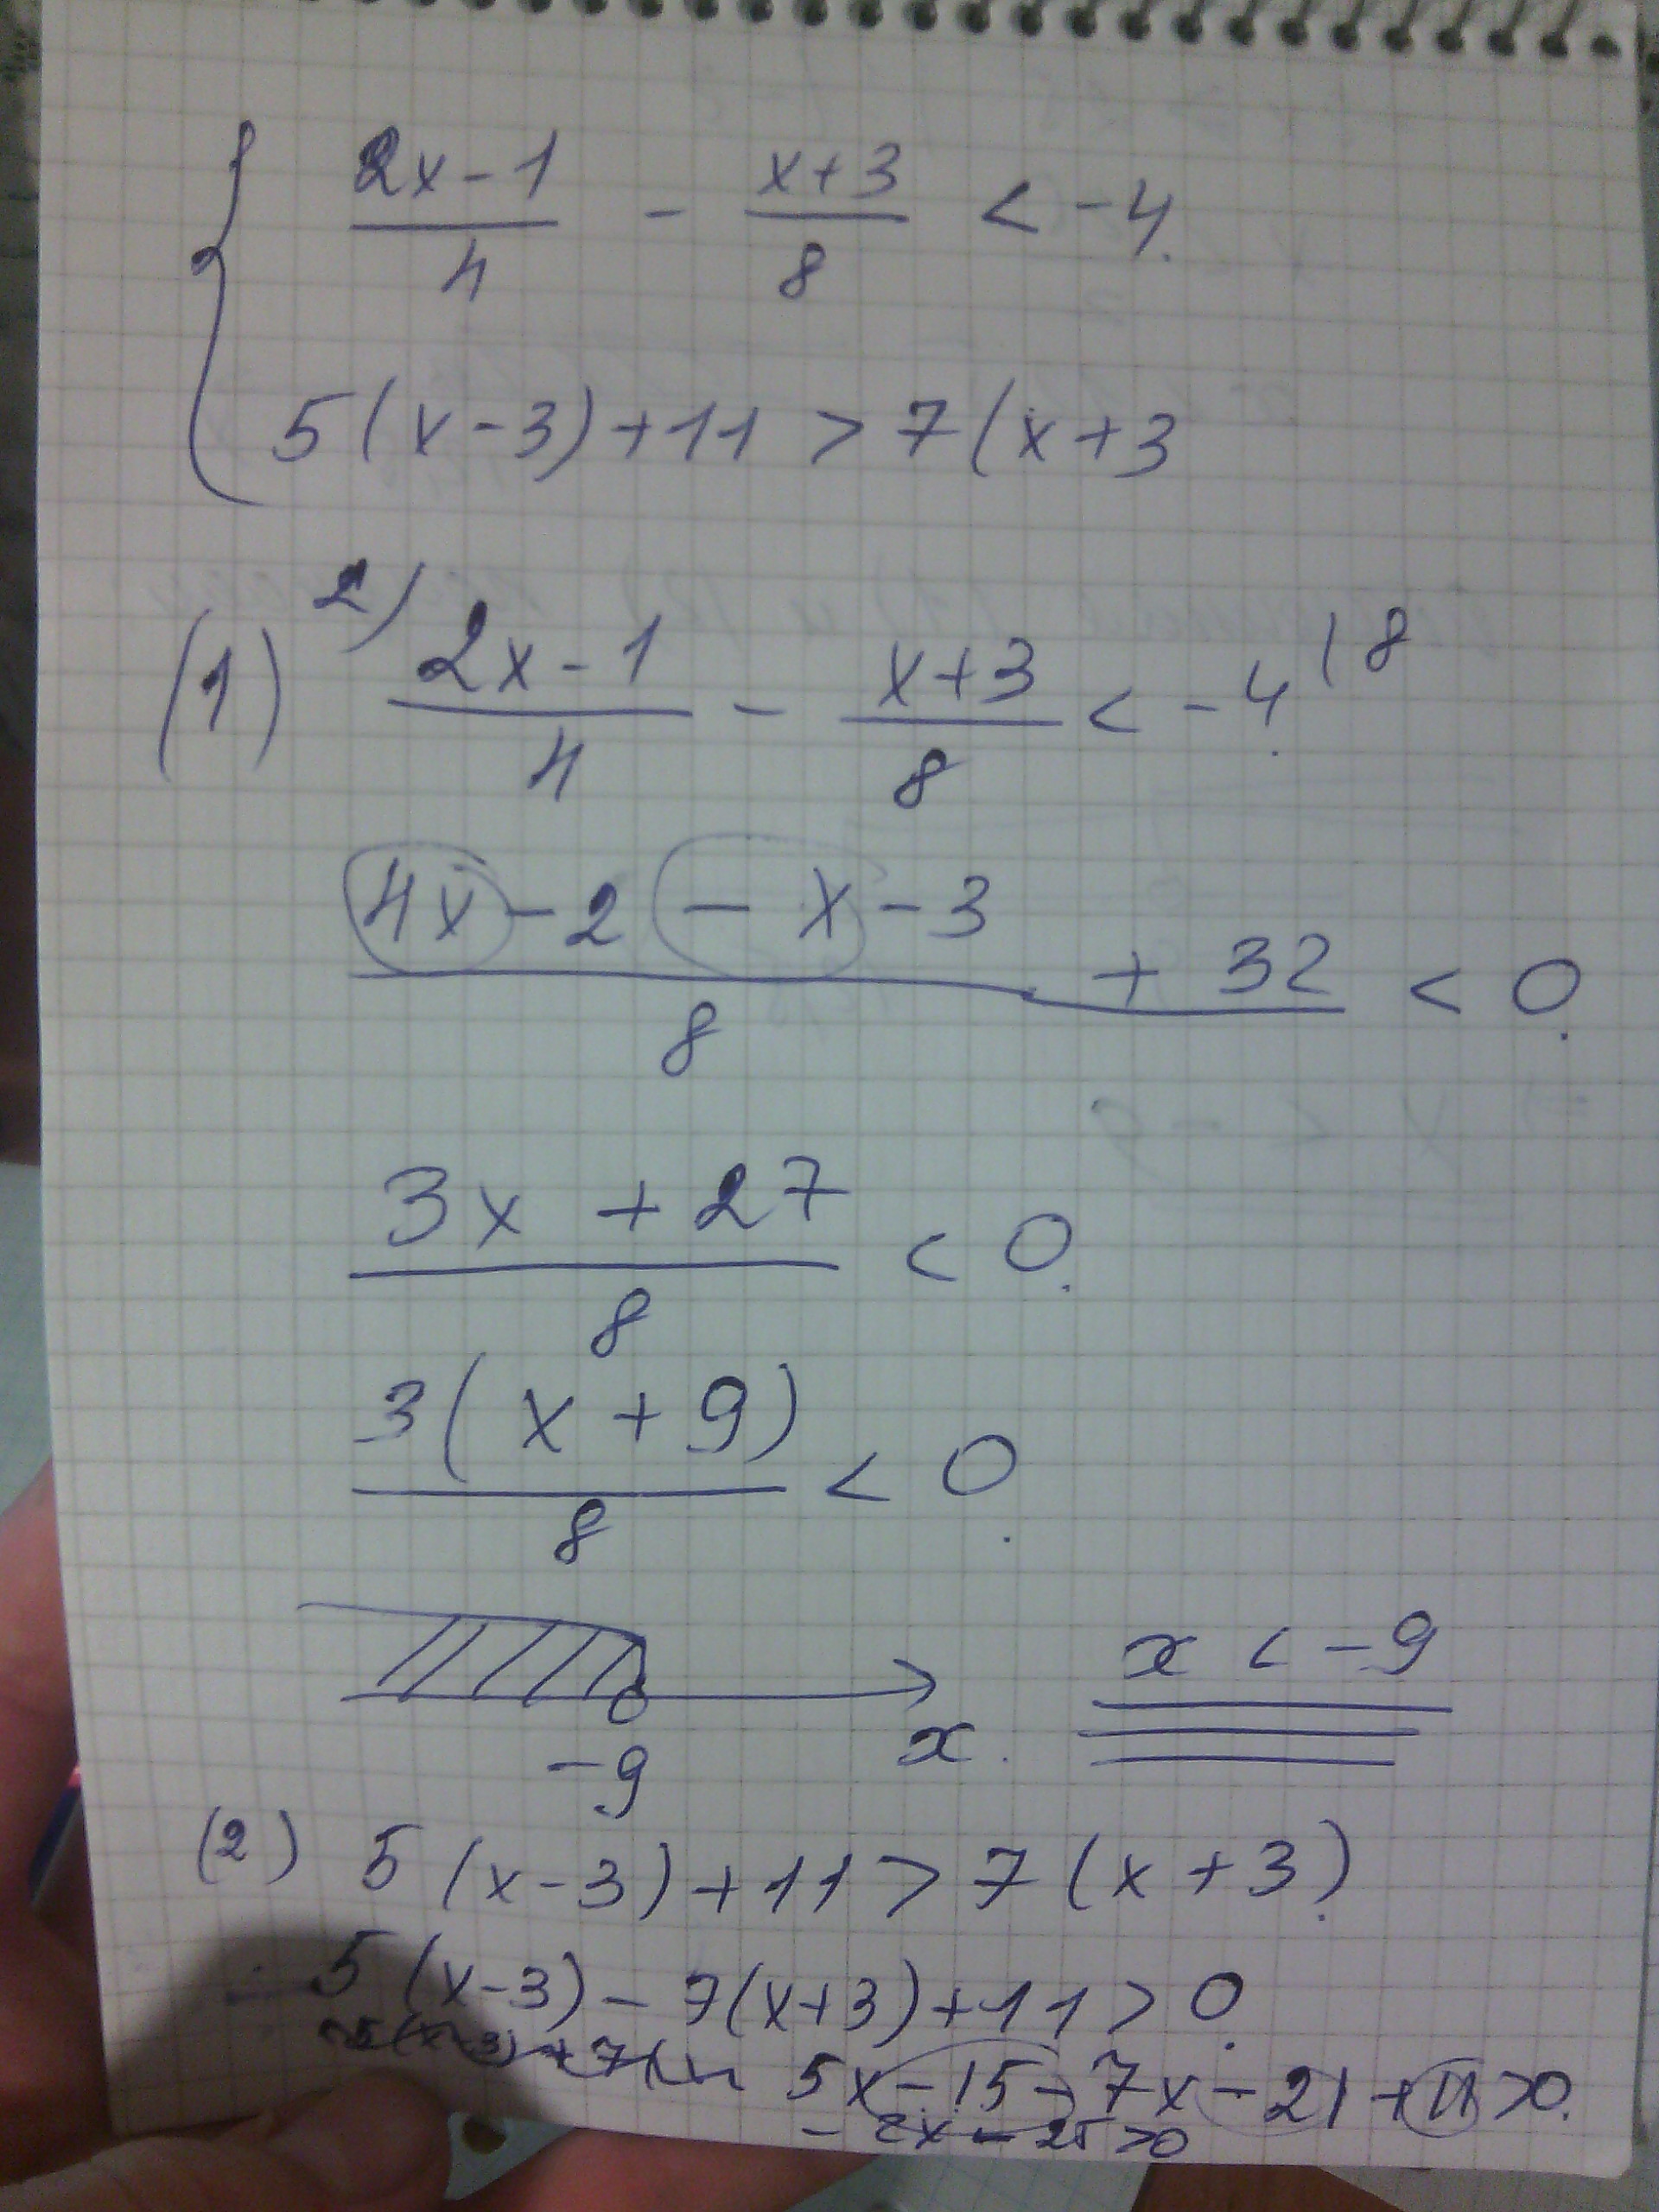 { (2x-1)/4 - (x+3)/8 < -4.
5(x-3)+11 > 7(x+3
(1) 2) (2x-1)/4 - (x+3)/8 < -4. | 8
(4x-2-x-3+32)/8 < 0.
(3x+27)/8 < 0.
3(x+9)/8 < 0.
-9 x. x < -9
(2) 5(x-3)+11 > 7(x+3).
5(x-3)-7(x+3)+11 > 0.
5x-15-7x-21+11 >0.
-2x-25 >0